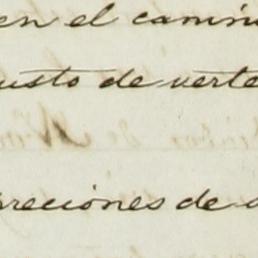 en el camin
usto de verte
preciones de